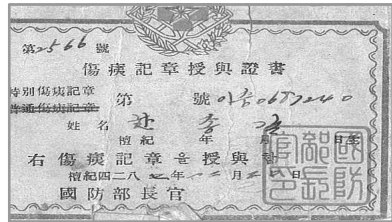 第2566 號
傷痍記章授與證書
特別傷痍記章
普通傷痍記章 第 號 이승0687240
姓名 趙
檀紀 年 月 日生
右傷痍記章을授與함
檀紀四二八 年 月 日
國防部長官
國防部長官